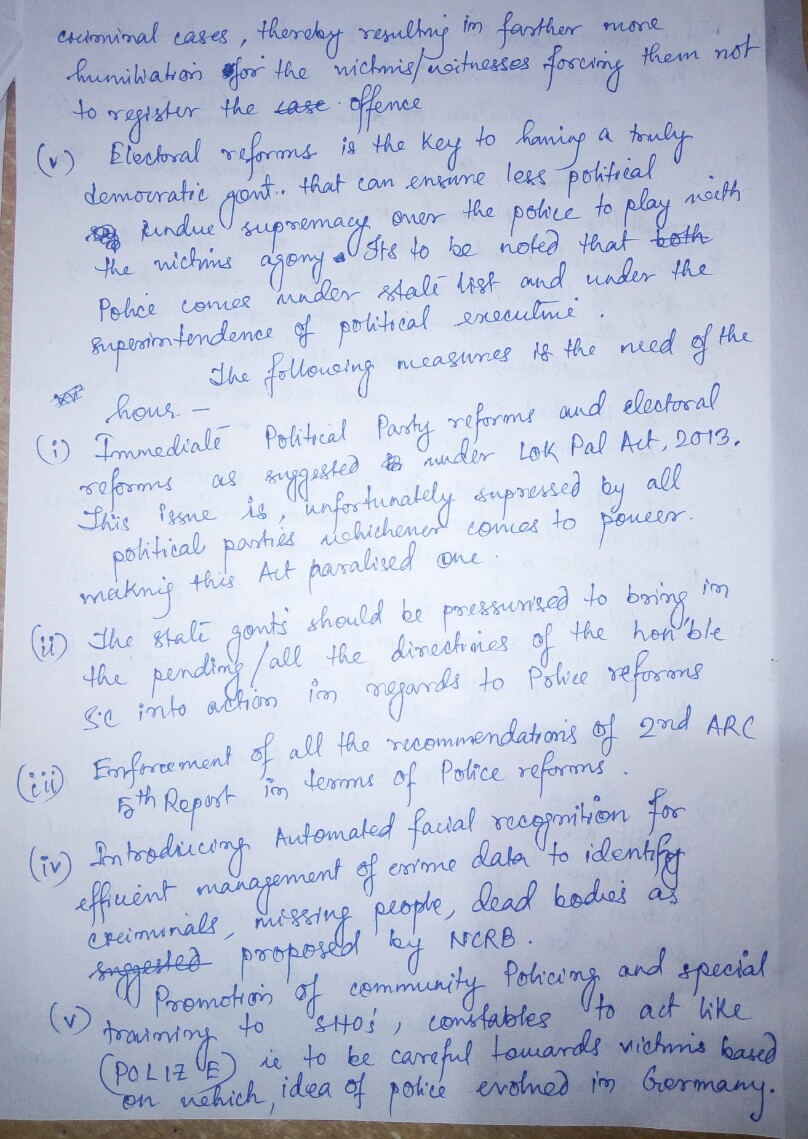 criminal cases, thereby resulting in farther more
humiliation for the victims/witnesses forcing them not
to register the case offence
(v) Electoral reforms is the key to having a truly
democratic govt.. that can ensure less political
undue supremacy over the police to play with
the victims agony. Its to be noted that both
Police comes under state list and under the
superintendence of political executive.
The following measures is the need of the
hour -
(i) Immediate Political Party reforms and electoral
reforms as suggested under Lok Pal Act, 2013.
This issue is, unfortunately supressed by all
political parties whichever comes to power.
making this Act paralised one.
(ii) The state govts should be pressurised to bring in
the pending/all the directives of the hon'ble
SC into action in regards to Police reforms
(iii) Enforcement of all the recommendations of 2nd ARC
5th Report in terms of Police reforms.
(iv) Introducing Automated facial recognition for
efficient management of crime data to identify
criminals, missing people, dead bodies as
suggested proposed by NCRB.
(v) Promotion of community Policing and special
training to SHO's, constables to act like
(POLIZE) ie to be careful towards victims based
on which, idea of police evolved in Germany.